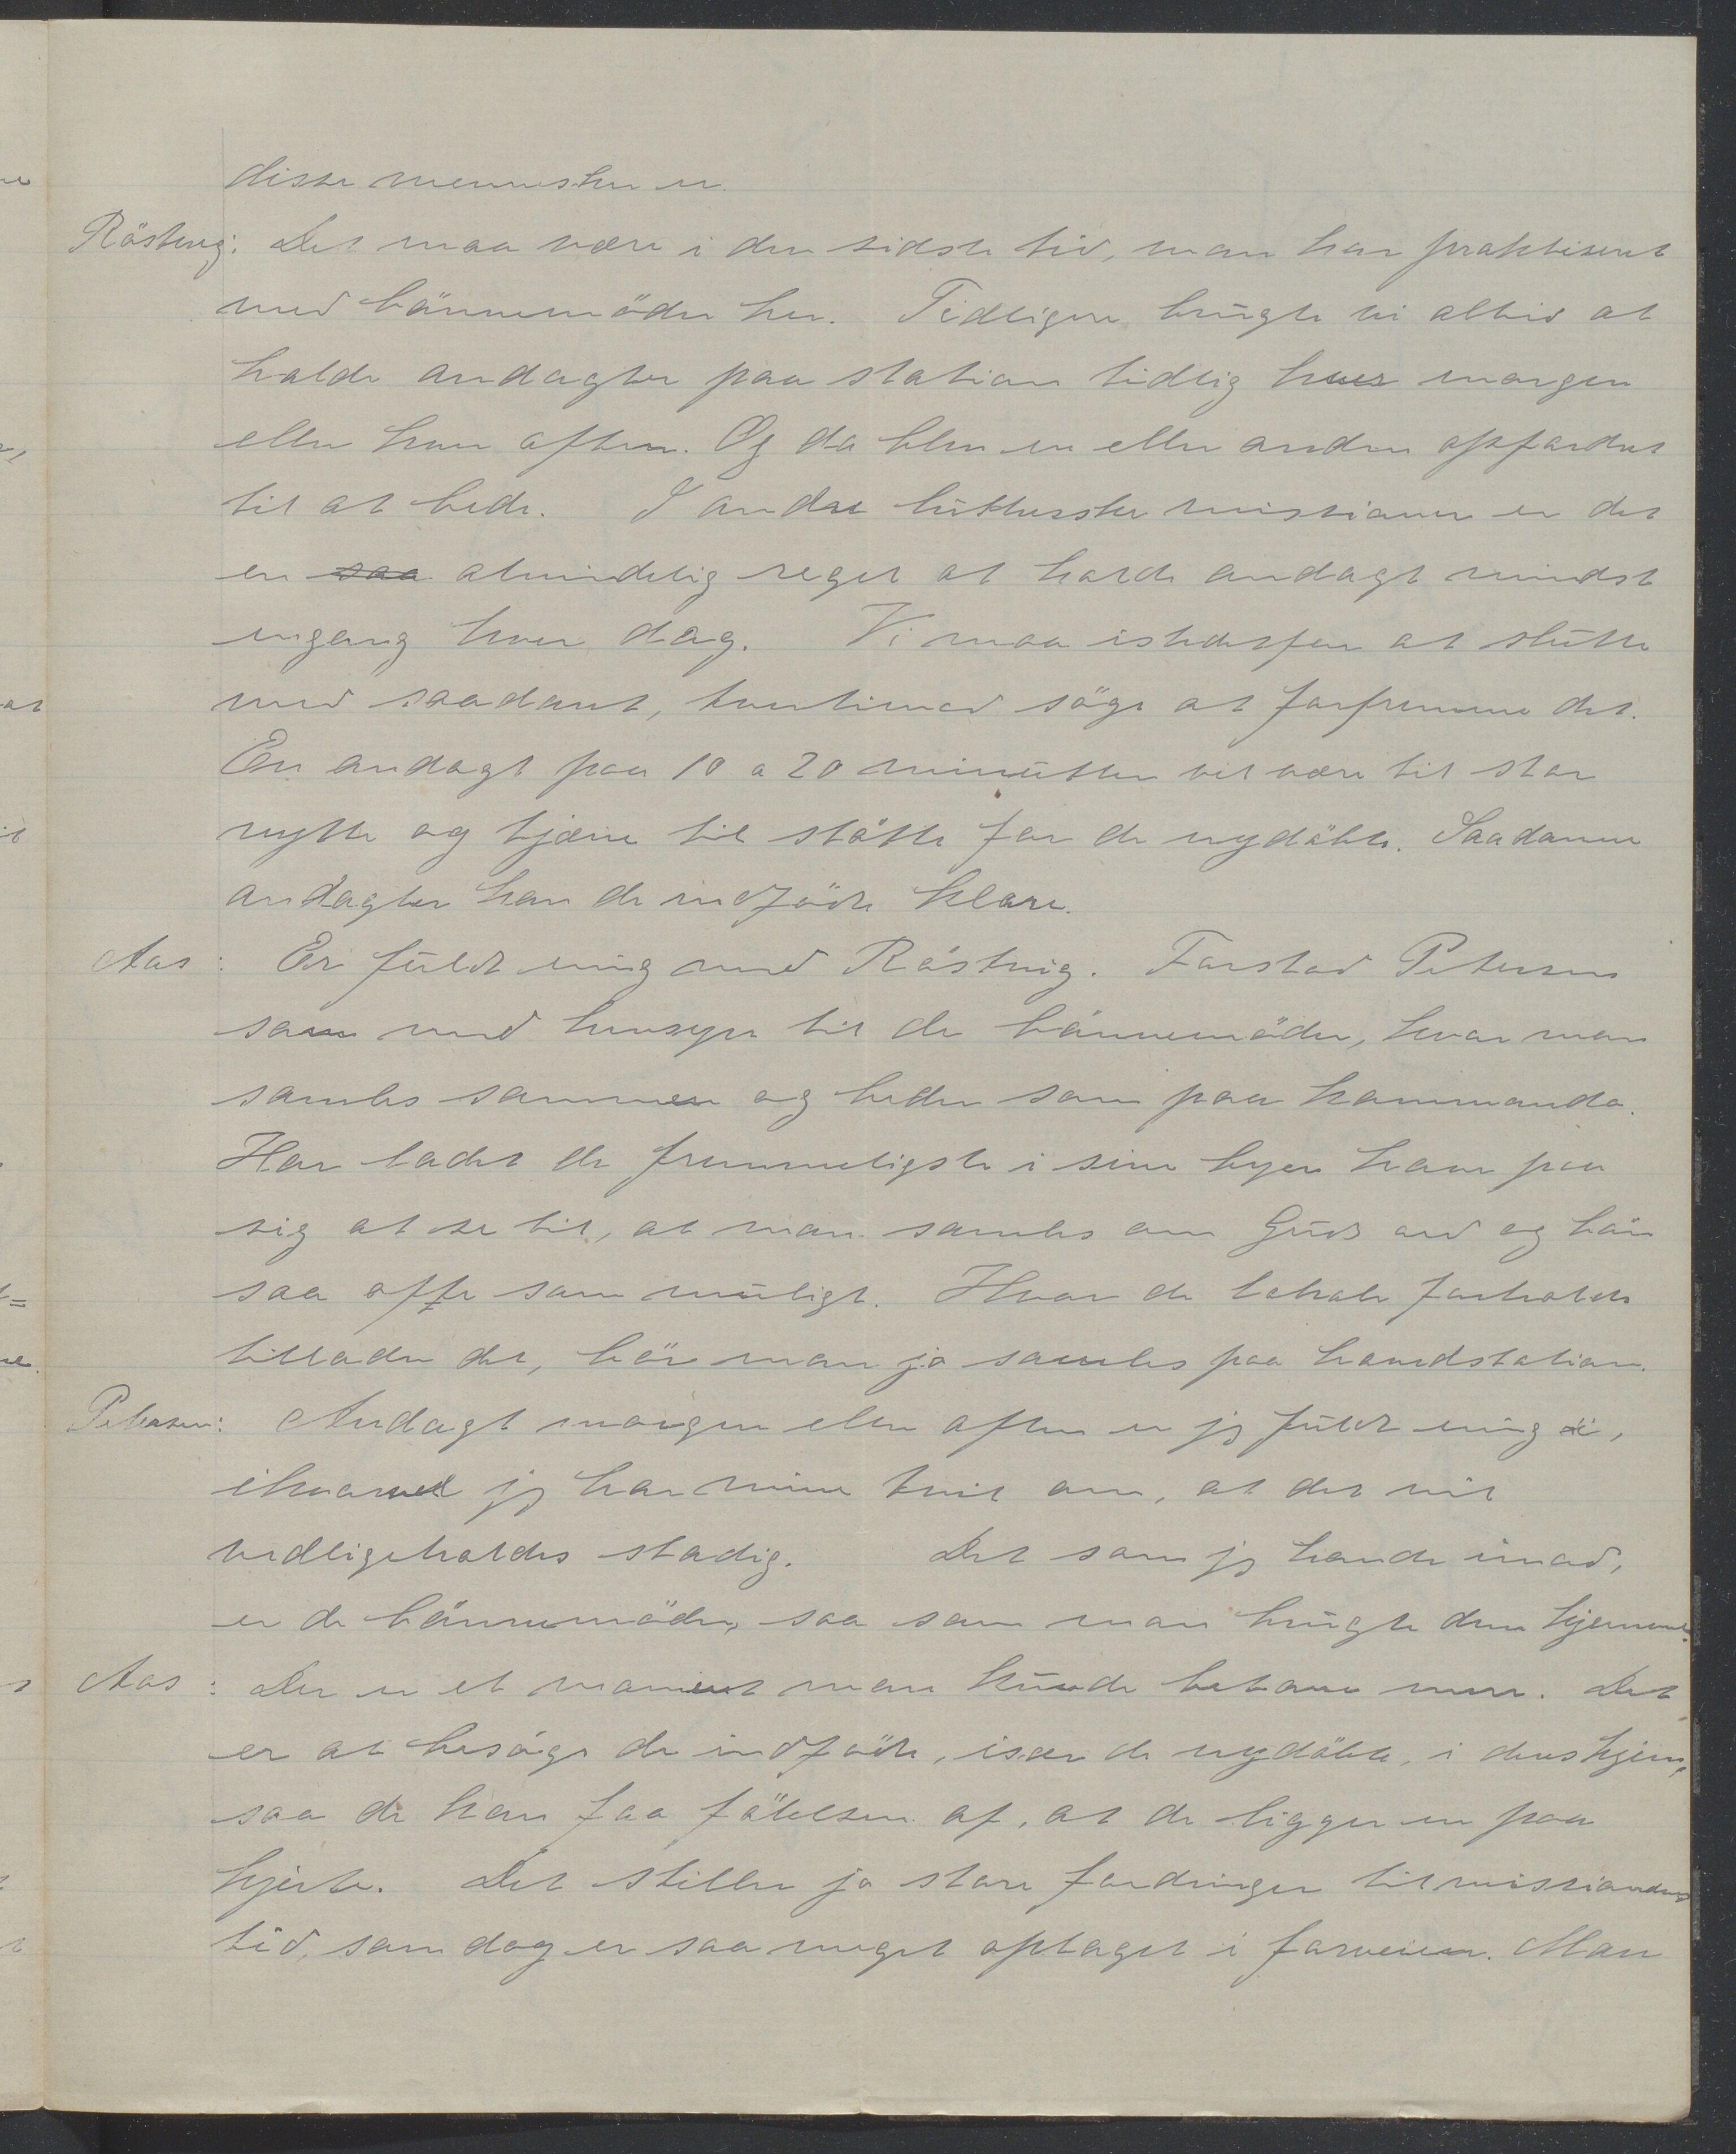 disse mennesker er.
Röstvig: Det maa være i den sidste tid, man har praktiseret
med bönnemöder her. Tidligere brugte vi altid at
holde andagter paa station tidlig hver morgen
eller hver aften. Og da blev en eller anden opfordret
til at bede. I andre lutherske missioner er det
en saa almindelig regel at holde andagt mindst
engang hver dag. Vi maa istedetfor at slutte
med saadant, tvertimod söge at forfremme det.
En andagt paa 10 a 20 minutter vil være til stor
nytte og tjene til stötte for de nydöbte. Saadanne
andagter kan de indfödte klare.
Aas: Er fuldt enig med Röstvig. Forstod Petersen
som med hensyn til de bönnemöder, hvor man
samles sammen og beder som paa kommando.
Har ladet de fremmeligste i sine byer have paa
sig at se til, at man samles om Guds ord og bön
saa ofte som muligt. Hvor de lokale forholde
tillader det, bör man jo samles paa hovedstation.
Petersen: Andagt morgen eller aften er jeg fuldt enig i,
ihvorvel jeg har mine tvil om, at det vil
vedligeholdes stadig. Det som jeg havde imod,
er de bönnemöder, saa som man brugte dem hjemme.
Aas: Der er et moment man kunde betone mere. Det
er at besöge de indfödte, især de nydöbte, i deres hjem,
saa de kan faa fölelsen af, at de ligger en paa
hjerte. Det stiller jo store fordringer til missionærens
tid, som dog er saa meget optaget i forveien. Man